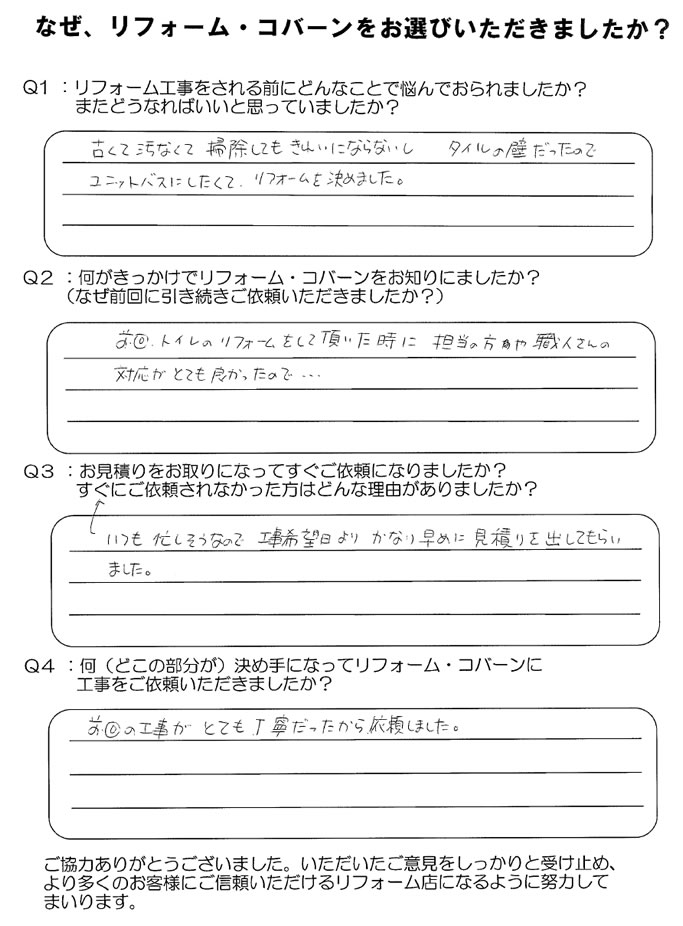 なぜ、リフォーム・コバーンをお選びいただきましたか？
Q1 ：リフォーム工事をされる前にどんなことで悩んでおられましたか？
またどうなればいいと思っていましたか？
古くて汚なくて 掃除してもきれいにならないし タイルの壁だったので
ユニットバスにしたくて、リフォームを決めました。
Q2 ：何がきっかけでリフォーム・コバーンをお知りにましたか？
（なぜ前回に引き続きご依頼いただきましたか？）
前回、トイレのリフォームをして頂いた時に 担当の方や職人さんの
対応がとても良かったので…
Q3 ：お見積りをお取りになってすぐご依頼になりましたか？
すぐにご依頼されなかった方はどんな理由がありましたか？
いつも忙しそうなので 工事希望日より かなり早めに見積りを出してもらい
ました。
Q4 ：何（どこの部分が）決め手になってリフォーム・コバーンに
工事をご依頼いただきましたか？
前回の工事が とても丁寧だったから依頼しました。
ご協力ありがとうございました。いただいたご意見をしっかりと受け止め、
より多くのお客様にご信頼いただけるリフォーム店になるように努力して
まいります。